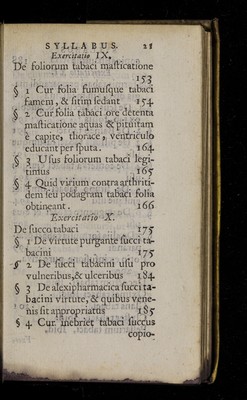 SYLLABUS. 21
Exercitatio IX.
De foliorum tabaci masticatione
153
§ 1 Cur folia fumusque tabaci
famem, & sitim sedant 154
§ 2 Cur folia tabaci ore detenta
masticatione aquas & pituitam
è capite, thorace, ventriculo
educant per sputa. 164
§ 3 Usus foliorum tabaci legi-
timus 165
§ 4 Quid virium contra arthriti-
dem seu podagram tabaci folia
obtineant. 166
Exercitatio X.
De succo tabaci 175
§ 1 De virtute purgante succi ta-
bacini 175
§ 2 De succi tabacini usu pro
vulneribus, & ulceribus 184
§ 3 De alexipharmacica succi ta-
bacini virtute, & quibus vene-
nis sit appropriatus 185
§ 4 Cur inebriet tabaci succus
copio-